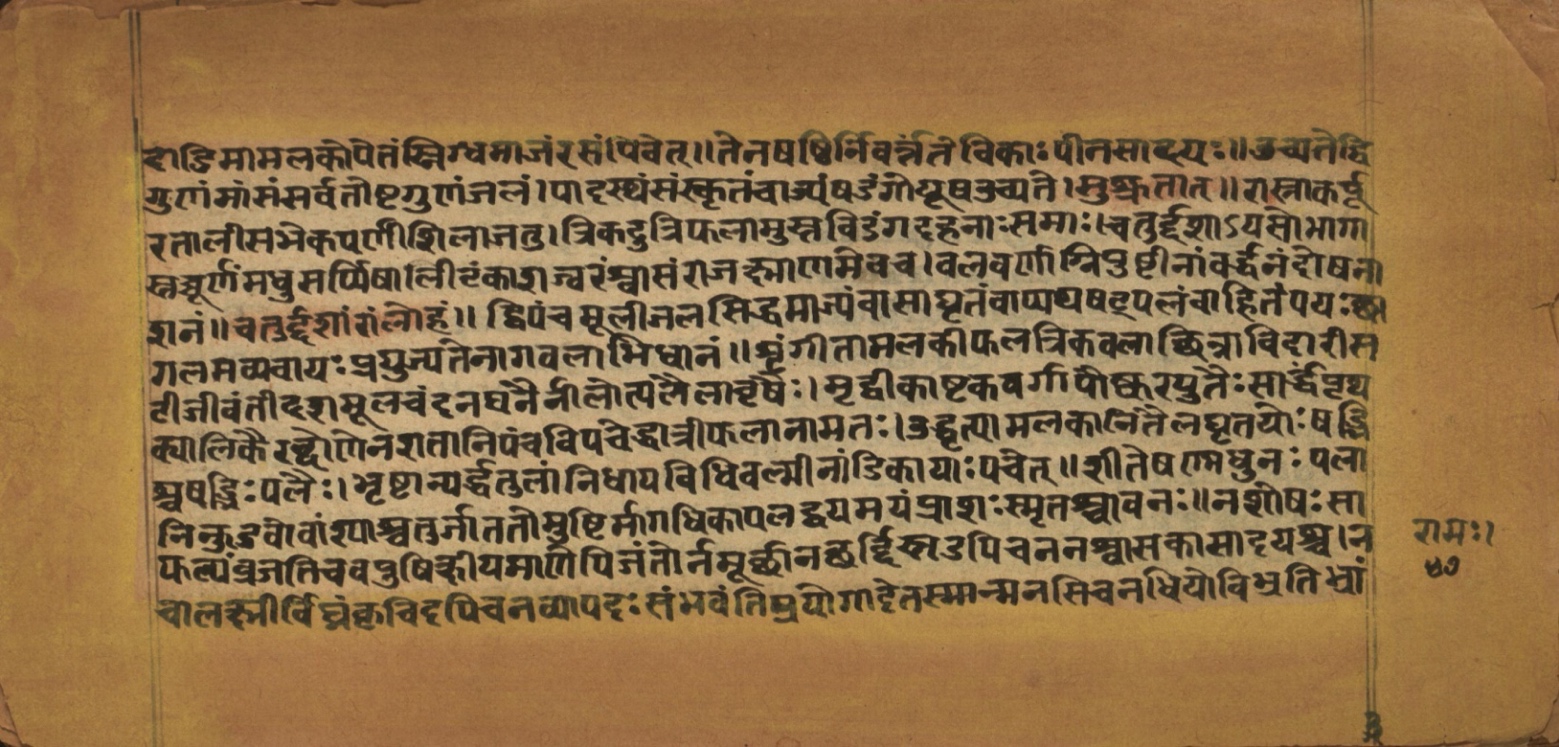 दाडिमामलकोपेतंस्निग्धमाजंरसंपिवेत्॥तेनषष्विर्निवर्त्तंतेविकाः पीनसाद्यः॥उच्यतेद्वि
गुणंमांसंसर्वतोष्टगुणंजलं।पादस्थंसंस्कृतंचाज्यंषडंगोयूषउच्यते।सुश्रुतात्॥रास्नाकर्पू
रतालीसभेकपर्णीशिलाजतु।त्रिकटुत्रिफलामुस्तविडंगदहनाःसमाः।चतुर्द्दशाऽयसोभागा
स्तच्चूर्णंमधुसर्प्पिषालीढंकाशज्वरंश्वासंराजयक्ष्माणमेवच।वलवर्णाग्निपुष्टीनांवर्द्धनंदोषना
शनं॥चतुर्द्दशांगंलोहं॥द्विपंचमूलीजलसिद्धमाज्यंवासाघृतंवाप्यथषट्पलंवाहितंपयःछा
गलमव्यवायःप्रयुज्यतेनागवलाभिधानं॥शृंगीतामलकीफलत्रिकवलाछिन्नाविदारीस
टीजीवंतीदशमूलचंदनघनैर्नीलोत्पलैलावृषैः।मृद्वीकाष्टकवर्गपौष्करयुतैःसार्द्धंपृथ
क्पालिकैरष्द्रोणेनशतानिपंचविपचेद्धात्रीफलानामतः।उद्धृत्यामलकानितैलघृतयोःषड्भि
श्चषड्भिःपलैः।भृष्टान्यर्द्धतुलांनिधायविधिवत्मीनांडिकायाःपचेत्॥शीतेषण्मधुनःपला
निकुडवोवांश्याश्चतुर्जाततोमुष्टिर्मागधिकापलद्वयमयंप्राशःस्मृतश्च्यावनः॥नशोषःसा
फल्यंव्रजतिचवपुषिक्षीयमाणेपिजंतोर्नमूर्छानछर्द्दि पिचननश्वासकासादयश्च।न
चालक्ष्मीर्विघ्नंक्वचिदपिचनव्यापदःसंभवंतिप्रयोगादेतस्मान्मनसिचनधियोविभ्रतिभ्रां
रामः।
४७